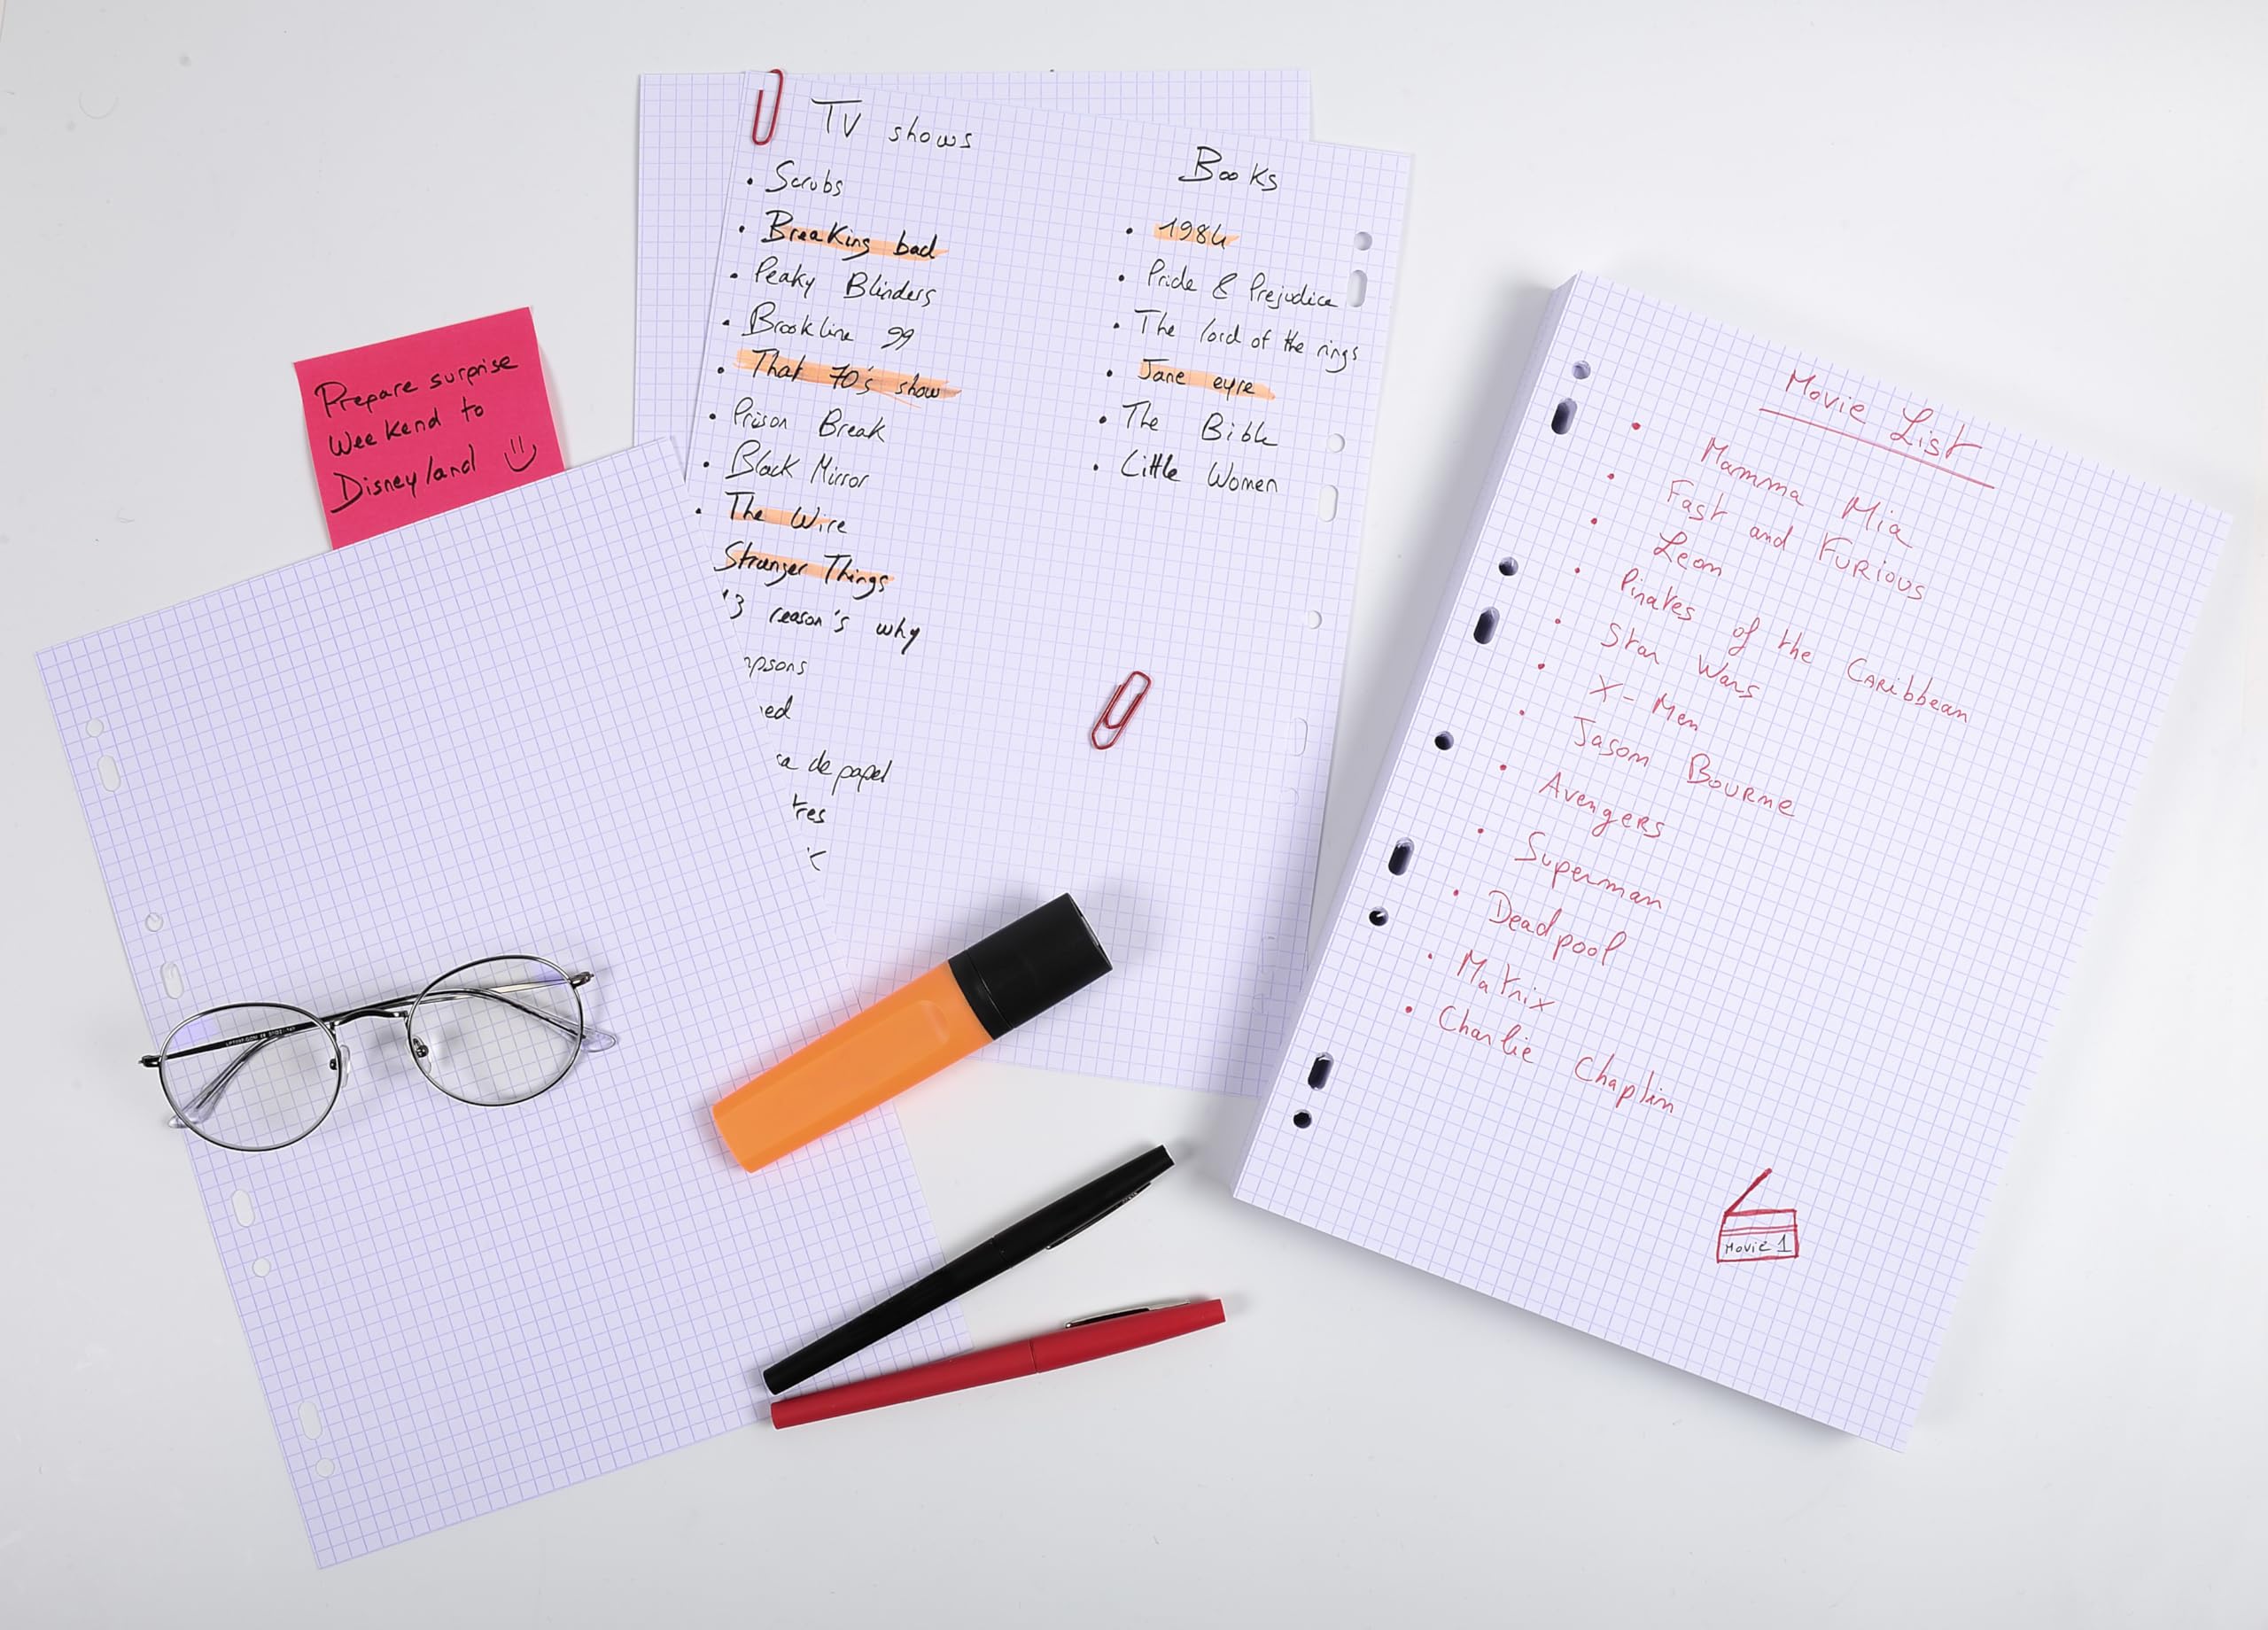 Prepare surprise
Weekend to
Disneyland
TV shows
Scrubs
Breaking bad
Peaky Blinders
Brookline 99
That 70's show
Prison Break
Black Mirror
The Wire
Stranger Things
13 reason's why
psons
ed
de papel
Books
1984
Pride & Prejudice
The lord of the rings
Jane eyre
The Bible
Little Women
Movie List
Mamma Mia
Fast and FURIOUS
Leon
Pirates of the CARibbean
Star Wars
X-Men
Jason BOURNE
AvengeRs
Superman
Deadpool
Matrix
Charlie Chaplin
Movie 1